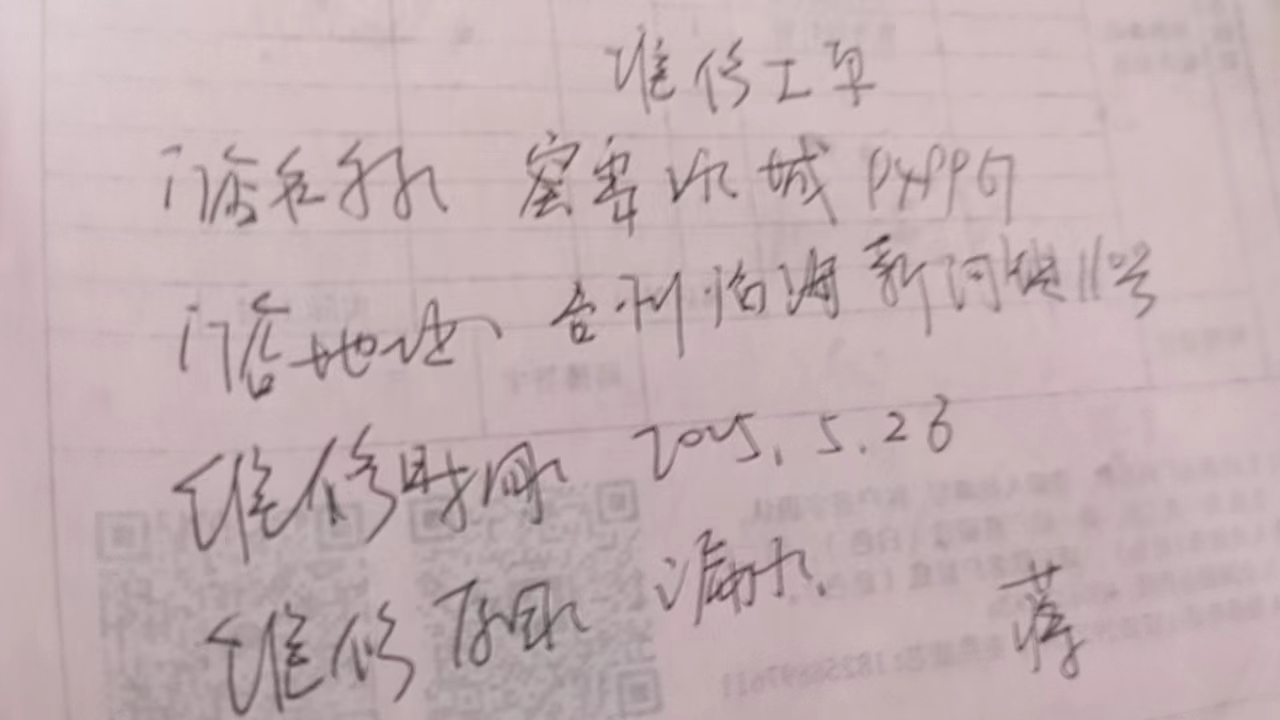 维修工单
门店名称 蜜雪冰城
门店地址 台州临海新河 110号
维修时间 2025.5.26
维修原因 漏水
蒋